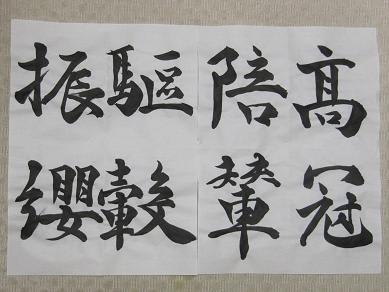 高冠
陪輦
驅轂
振纓